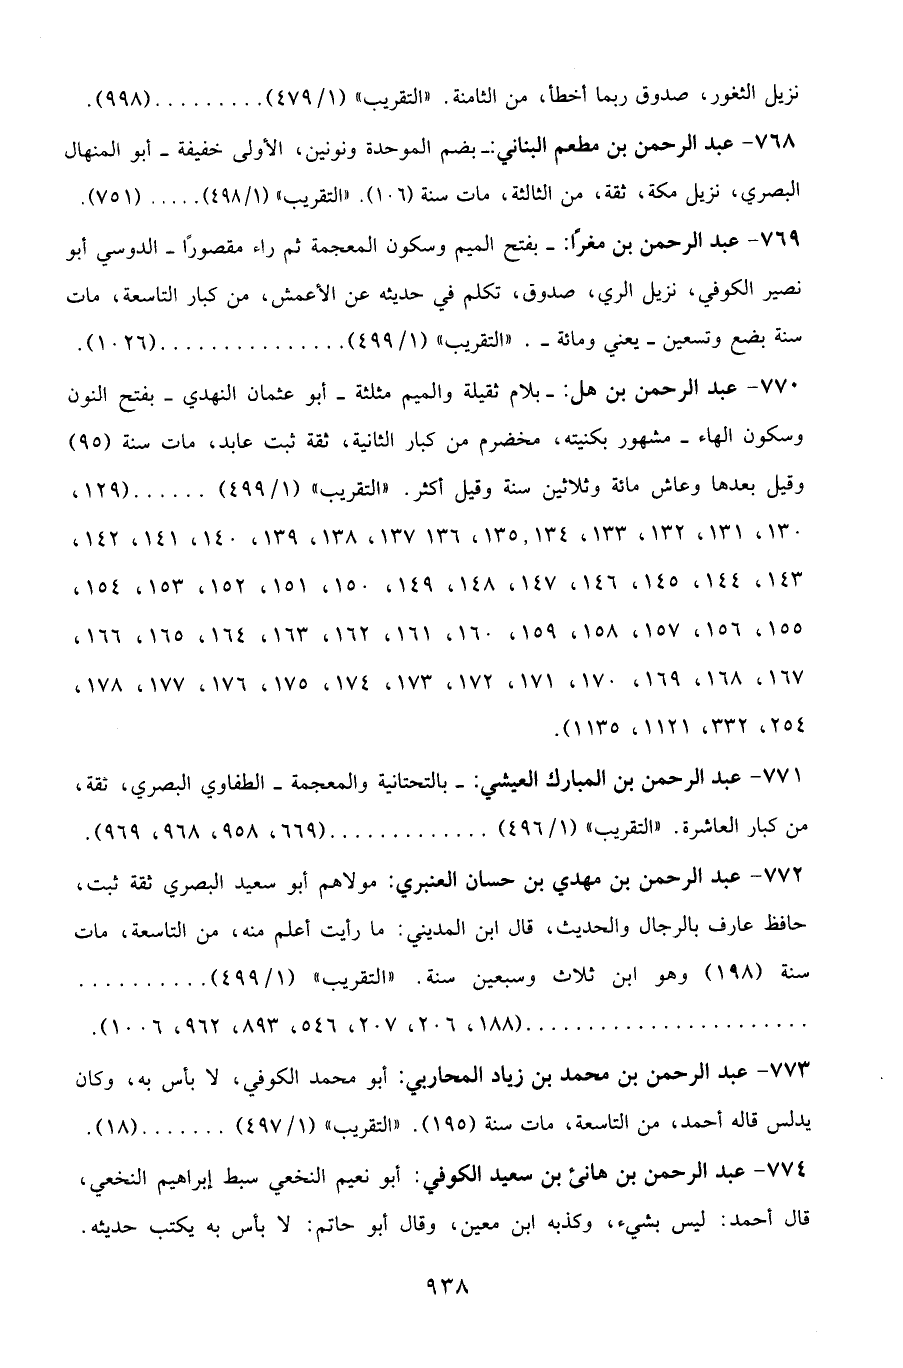 نزيل الثغور، صدوق ربما أخطأ، من الثامنة. «التقريب» (١/ ٤٧٩).........(٩٩٨).
٧٦٨- عبد الرحمن بن مطعم البناني:ـ بضم الموحدة ونونين، الأولى خفيفة ـ أبو المنهال
البصري، نزيل مكة، ثقة، من الثالثة، مات سنة (١٠٦). «التقريب» (١/ ٤٩٨)..... (٧٥١).
٧٦٩- عبد الرحمن بن مغرًا: ـ بفتح الميم وسكون المعجمة ثم راء مقصورًا ـ الدوسي أبو
نصير الكوفي، نزيل الري، صدوق، تكلم في حديثه عن الأعمش، من كبار التاسعة، مات
سنة بضع وتسعين ـ يعني ومائة ـ . «التقريب» (١/ ٤٩٩)...............(١٠٢٦).
٧٧٠- عبد الرحمن بن هل: ـ بلام ثقيلة والميم مثلثة ـ أبو عثمان النهدي ـ بفتح النون
وسكون الهاء ـ مشهور بكنيته، مخضرم من كبار الثانية، ثقة ثبت عابد، مات سنة (٩٥)
وقيل بعدها وعاش مائة وثلاثين سنة وقيل أكثر. «التقريب» (١/ ٤٩٩) ......(١٢٩،
١٣٠، ١٣١، ١٣٢، ١٣٣، ١٣٤, ١٣٥، ١٣٦ ١٣٧، ١٣٨، ١٣٩، ١٤٠، ١٤١، ١٤٢،
١٤٣، ١٤٤، ١٤٥، ١٤٦، ١٤٧، ١٤٨، ١٤٩، ١٥٠، ١٥١، ١٥٢، ١٥٣، ١٥٤،
١٥٥، ١٥٦، ١٥٧، ١٥٨، ١٥٩، ١٦٠، ١٦١، ١٦٢، ١٦٣، ١٦٤، ١٦٥، ١٦٦،
١٦٧، ١٦٨، ١٦٩، ١٧٠، ١٧١، ١٧٢، ١٧٣، ١٧٤، ١٧٥، ١٧٦، ١٧٧، ١٧٨،
٢٥٤، ٣٣٢، ١١٢١، ١١٣٥).
٧٧١- عبد الرحمن بن المبارك العيشي: ـ بالتحتانية والمعجمة ـ الطفاوي البصري، ثقة،
من كبار العاشرة. «التقريب» (١/ ٤٩٦) .............(٦٦٩، ٩٥٨، ٩٦٨، ٩٦٩).
٧٧٢- عبد الرحمن بن مهدي بن حسان العنبري: مولاهم أبو سعيد البصري ثقة ثبت،
حافظ عارف بالرجال والحديث، قال ابن المديني: ما رأيت أعلم منه، من التاسعة، مات
سنة (١٩٨) وهو ابن ثلاث وسبعين سنة. «التقريب» (١/ ٤٩٩)..........
........................(١٨٨، ٢٠٦، ٢٠٧، ٥٤٦، ٨٩٣، ٩٦٢، ١٠٠٦).
٧٧٣- عبد الرحمن بن محمد بن زياد المحاربي: أبو محمد الكوفي، لا بأس به، وكان
يدلس قاله أحمد، من التاسعة، مات سنة (١٩٥). «التقريب» (١/ ٤٩٧) .......(١٨).
٧٧٤- عبد الرحمن بن هانئ بن سعيد الكوفي: أبو نعيم النخعي سبط إبراهيم النخعي،
قال أحمد: ليس بشيء، وكذبه ابن معين، وقال أبو حاتم: لا بأس به يكتب حديثه.
٩٣٨